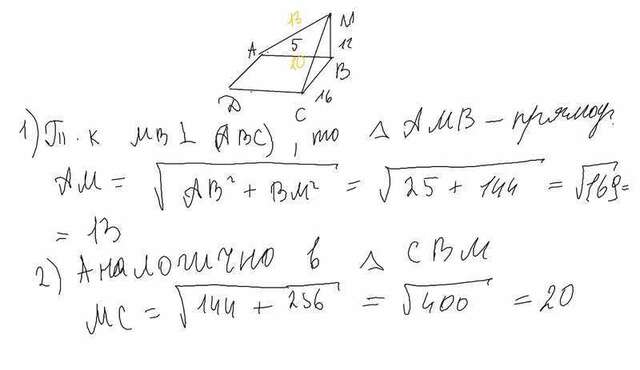 13
M
A 5 12
20 B
D 16
C
1) Т. к MB ⊥ (ABC), то △ AMB – прямоуг.
AM = √AB² + BM² = √25 + 144 = √169 =
= 13
2) Аналогично в △ CBM
MC = √144 + 256 = √400 = 20